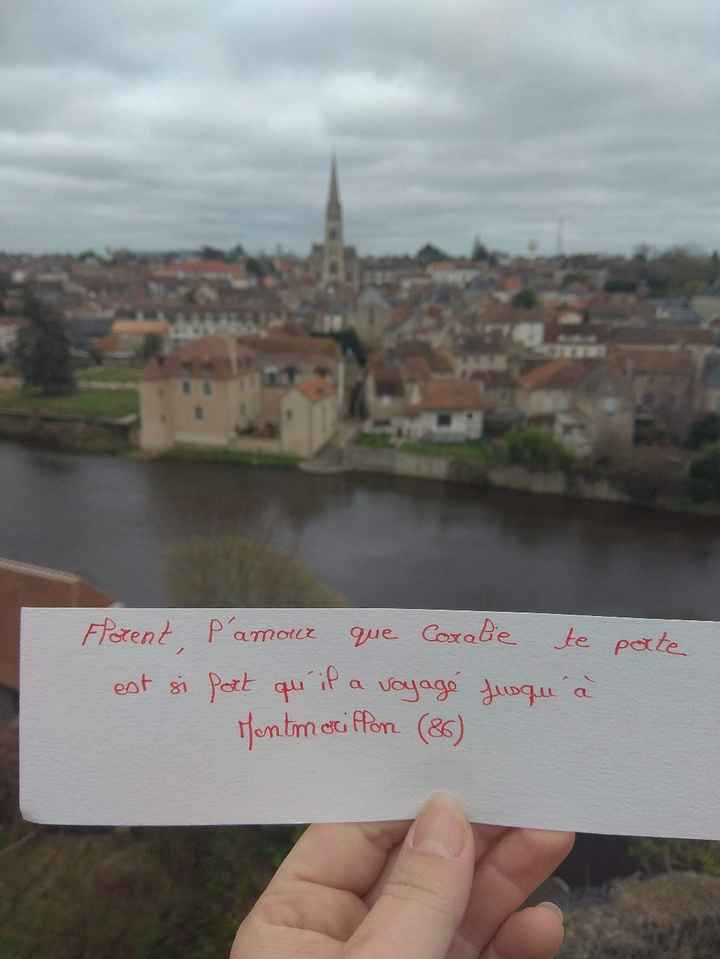 Florent, l'amour que Coralie te porte
est si fort qu'il a voyagé jusqu'à
Montmorillon (86)